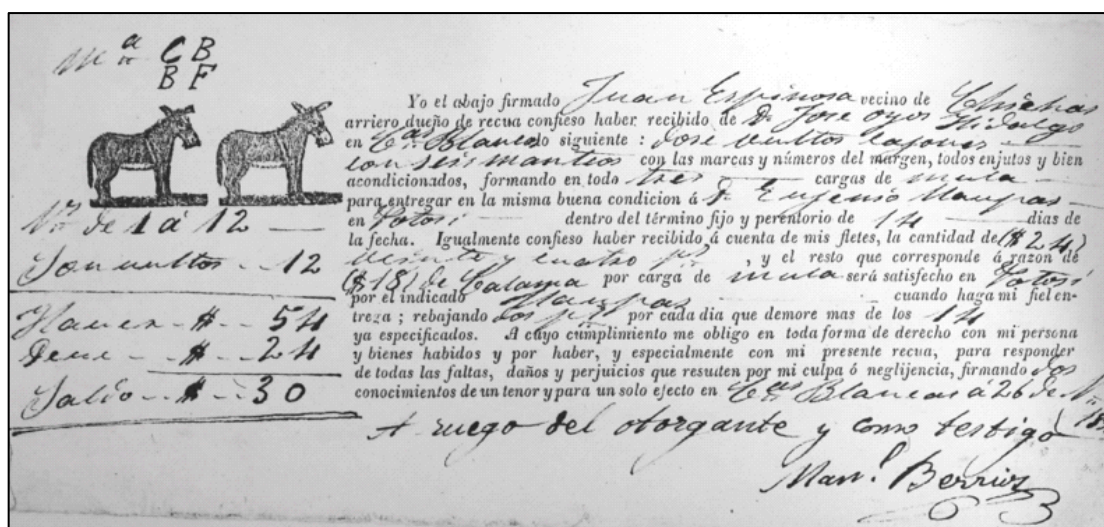 Mª CB
BF
Nos de 1 á 12
Son vultos .. 12
Haver - $ - 54
Deve - $ - 24
Saldo - $ - 30
Yo el abajo firmado Juan Espinosa vecino de Chichas
arriero dueño de recua confieso haber recibido de Dn José Oyos Hidalgo
en Cas Blancas lo siguiente : dose vultos cajones
con seis manteos con las marcas y números del margen, todos enjutos y bien
acondicionados, formando en todo tres cargas de mula
para entregar en la misma buena condicion á Dn Eugenio
en Potosí dentro del término fijo y perentorio de 14 dias de
la fecha. Igualmente confieso haber recibido á cuenta de mis fletes, la cantidad de ($24)
veinte y cuatro ps , y el resto que corresponde á razon de
($18) de Calama por carga de mula será satisfecho en Potosí
por el indicado cuando haga mi fiel en-
treza ; rebajando dos ps por cada dia que demore mas de los 14
ya especificados. A cuyo cumplimiento me obligo en toda forma de derecho con mi persona
y bienes habidos y por haber, y especialmente con mi presente recua, para responder
de todas las faltas, daños y perjuicios que resulten por mi culpa ó neglijencia, firmando dos
conocimientos de un tenor y para un solo efecto en Cas Blancas á 26 de
A ruego del otorgante y como testigo
Manl. Berrios